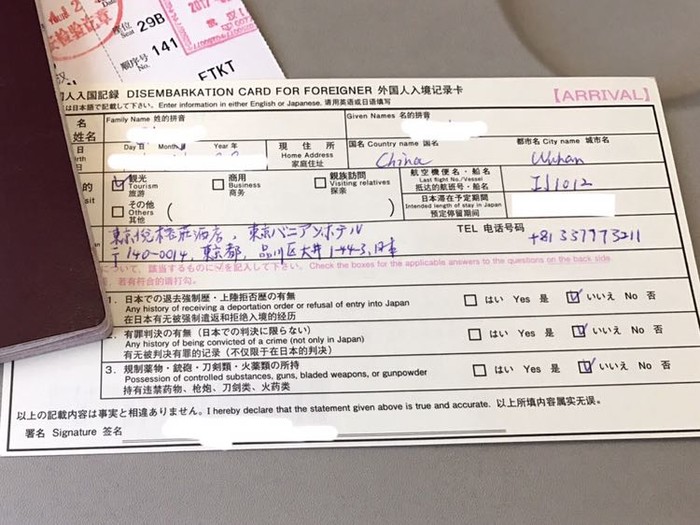 座位 Seat 29B
顺序号 No. 141
ETKT
2017
人入国記録 DISEMBARKATION CARD FOR FOREIGNER 外国人入境记录卡
【ARRIVAL】
は日本語で記載して下さい。Enter information in either English or Japanese. 请用英语或日语填写
名 姓名
Family Name 姓的拼音
Given Names 名的拼音
Day 日 Month 月 Year 年
現住所 Home Address 家庭住址
国名 Country name 国名
China
都市名 City name 城市名
Wuhan
観光 Tourism 旅游
商用 Business 商务
親族訪問 Visiting relatives 探亲
その他 Others 其他
航空機便名・船名 Last flight No./Vessel 抵达的航班号・船名
IJ1012
日本滞在予定期間 Intended length of stay in Japan 预定停留期间
東京悦榕庄酒店，東京バニアンホテル
TEL 电话号码
+81 337773211
〒140-0014，東京都，品川区大井1-44-3，日本
について、該当するものに☑を記入して下さい。Check the boxes for the applicable answers to the questions on the back side
若有符合的请打勾。
1. 日本での退去強制歴・上陸拒否歴の有無
Any history of receiving a deportation order or refusal of entry into Japan
在日本有无被强制遣返和拒绝入境的经历
はい Yes 是 いいえ No 否
2. 有罪判決の有無（日本での判決に限らない）
Any history of being convicted of a crime (not only in Japan)
有无被判决有罪的记录（不仅限于在日本的判决）
はい Yes 是 いいえ No 否
3. 規制薬物・銃砲・刀剣類・火薬類の所持
Possession of controlled substances, guns, bladed weapons, or gunpowder
持有违禁药物、枪炮、刀剑类、火药类
はい Yes 是 いいえ No 否
以上の記載内容は事実と相違ありません。I hereby declare that the statement given above is true and accurate. 以上所填内容属实无误。
署名 Signature 签名